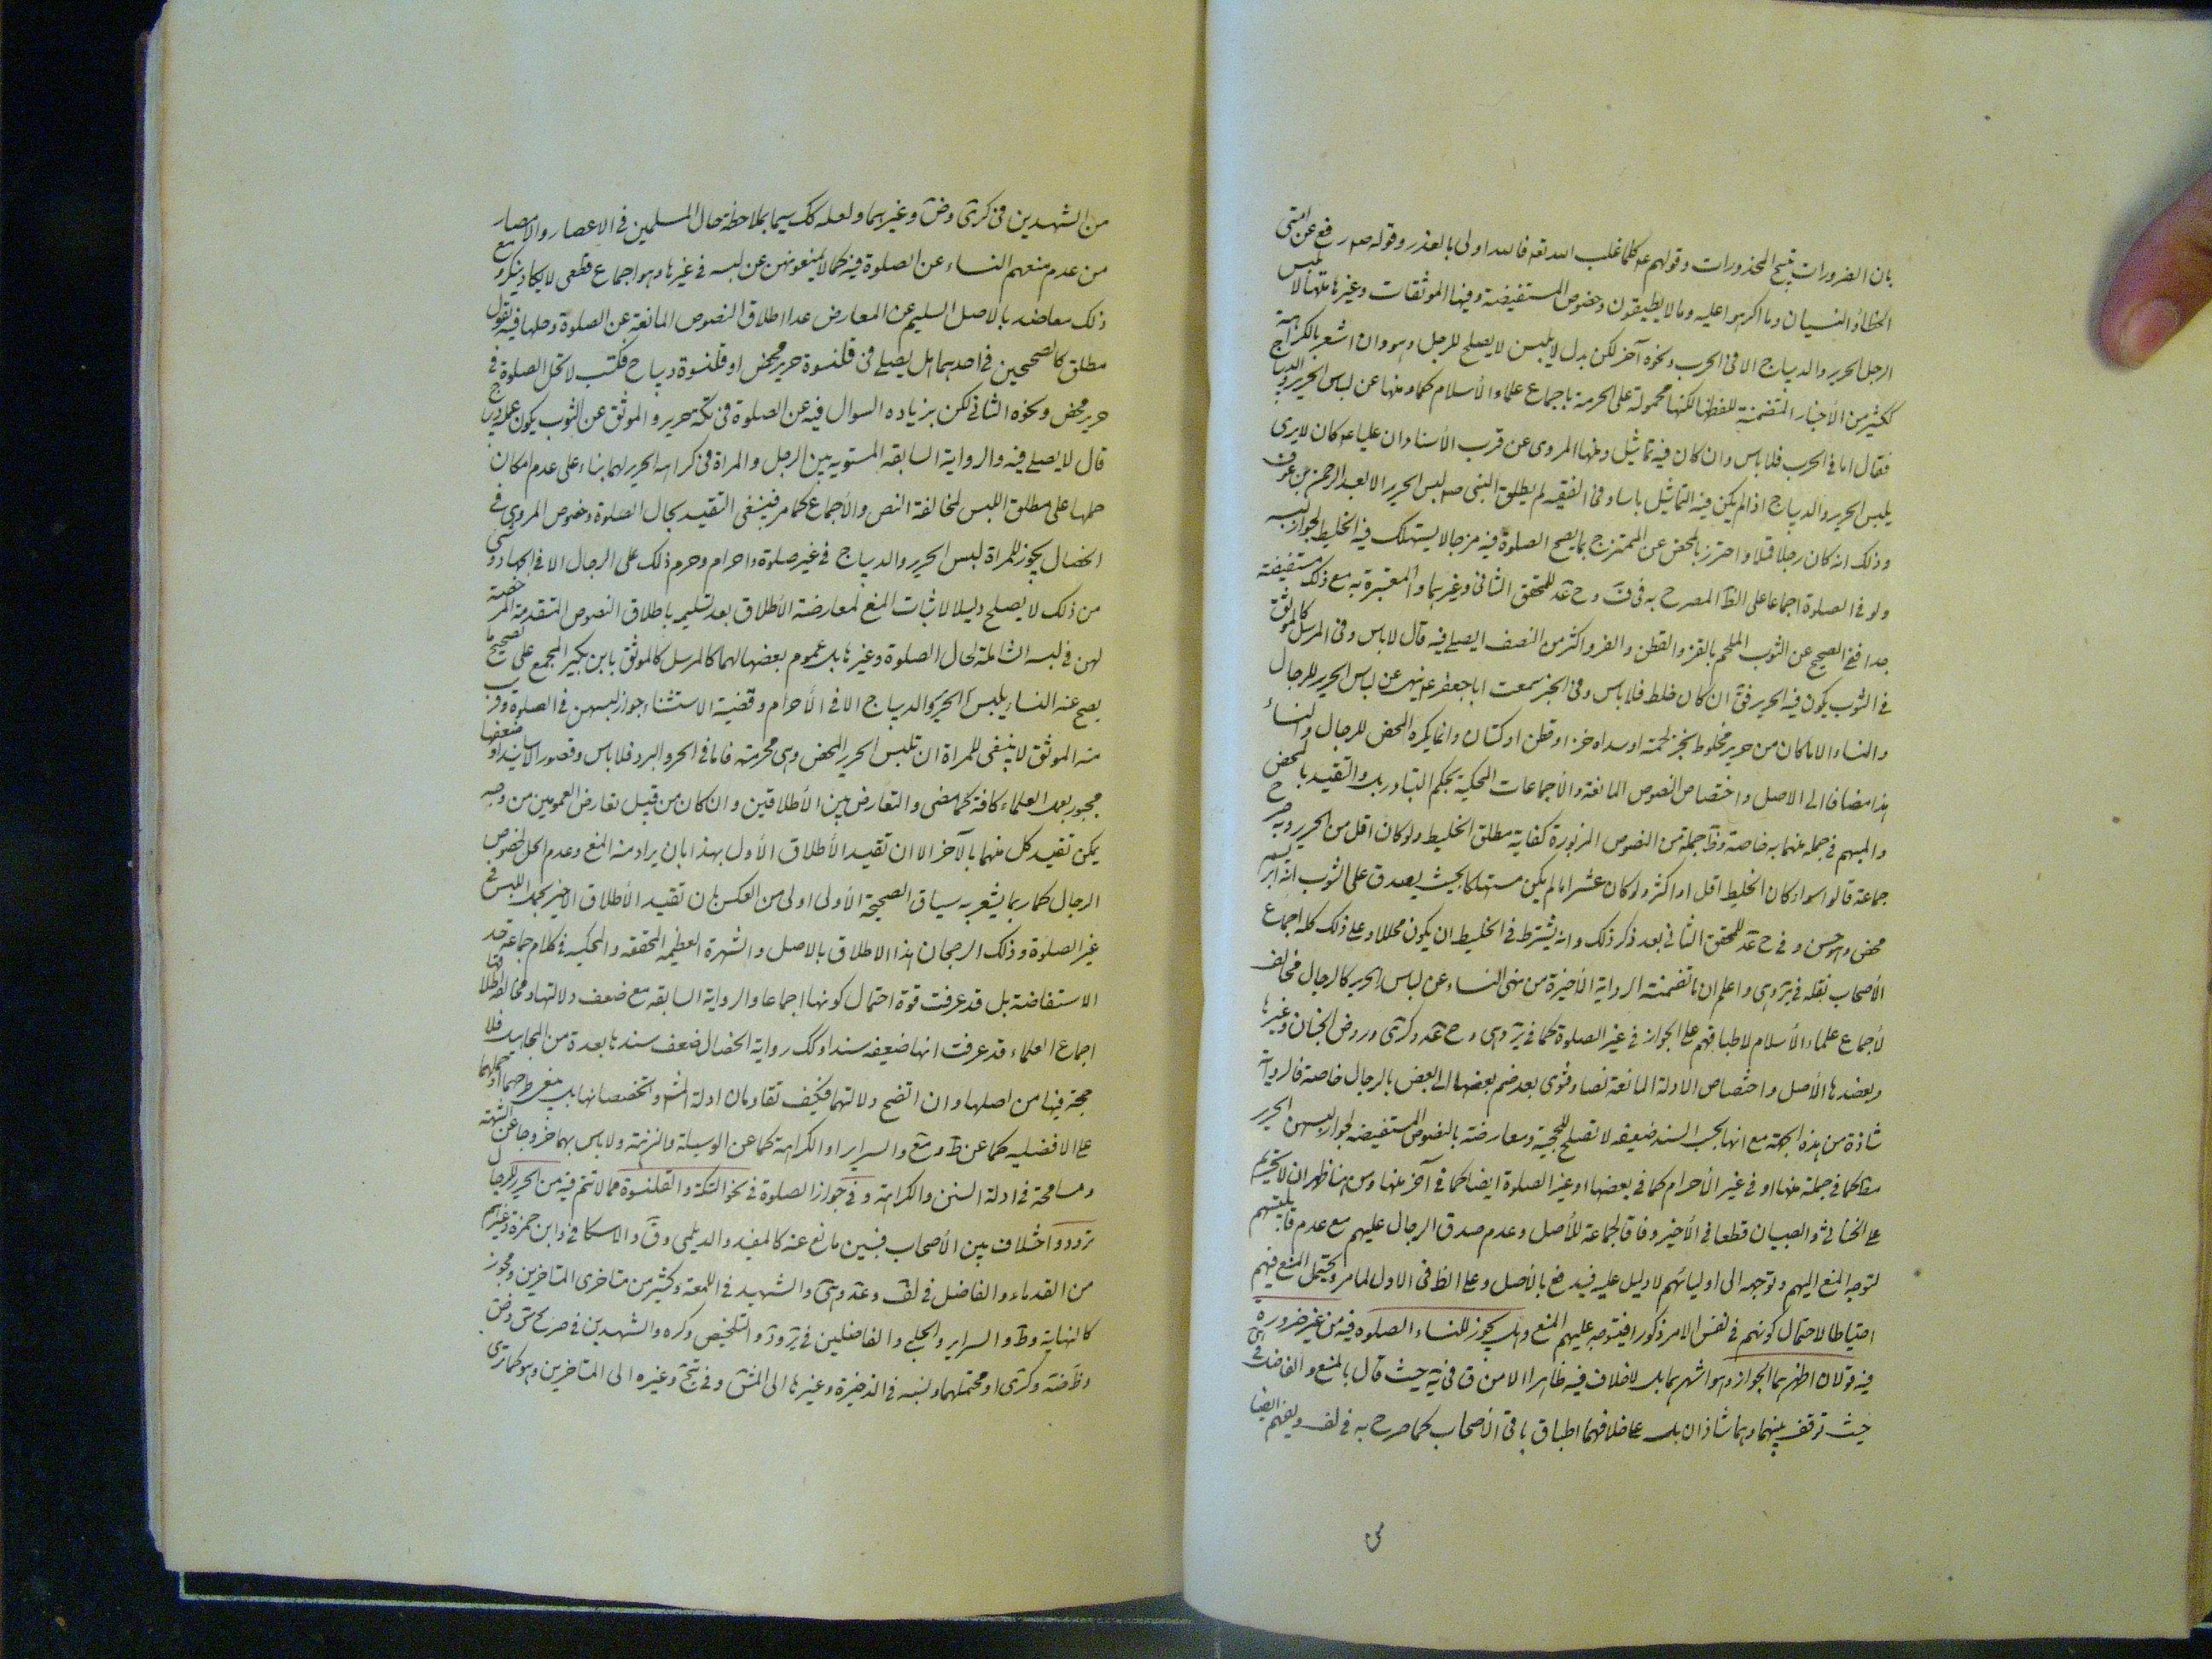 بان الضرورات تبيح المحذورات وقولهم عه كلما غلب الله تعه فالله اولى بالعذر وقوله صه رفع عن امتى
الخطاء والنسيان وما اكرهوا عليه وما لا يطيقون وخصوص المستفيضة وفيها الموثقات وغيرها منها لا يلبس
الرجل الحرير والديباج الا فى الحرب ونحوه آخر لكن بدل لا يلبس لا يصلح للرجل وهو وان اشعر بالكراهة
ككثير من الأخبار المتضمنة للفظها لكنها محمولة على الحرمة باجماع علماء الأسلام كما ومنها عن لباس الحرير والديباج
فقال اما فى الحرب فلا باس وان كان فيه تماثيل ومنها المروى عن قرب الأسناد ان عليا عه كان لا يرى
يلبس الحرير والديباج اذا لم يكن فيه التماثيل باسا وفى الفقيه لم يطلق النبى صه لبس الحرير الا لعبد الرحمن بن عوف
وذلك انه كان رجلا قملا واحترز بالمحض عن الممتزج بما يصح الصلوة فيه مزجا لا يستهلك فيه الخليط لجواز لبسه
ولو فى الصلوة اجماعا على الظ المصرح به فى ف وح عد للمحقق الثانى وغيرهما والمعتبرة به مع ذلك مستفيضة
جدا ففى الصحيح عن الثوب الملحم بالقز والقطن والقز اكثر من النصف ايصلى فيه قال لا باس وفى المرسل كالموثق
فى الثوب يكون فيه الحرير فق ان كان خلط فلا باس وفى الخبر سمعت ابا جعفر عه ينهى عن لباس الحرير للرجال
والنساء الا ما كان من حرير مخلوط بخز لحمته او سداه خز او قطن او كتان وانما يكره المحض للرجال والنساء
هذا مضافا الى الاصل واختصاص النصوص المانعة والأجماعات المحكية بحكم التبادر بل والتقييد بالمحض
والمبهم فى جملة منهما به خاصة وظ جملة من النصوص المزبورة كفاية مطلق الخليط ولو كان اقل من الحرير وبه صرح
جماعة قالوا سواء كان الخليط اقل او اكثر ولو كان عشرا ما لم يكن مستهلكا بحيث يصدق على الثوب انه ابريسم
محض وهو حسن وفى ح عد للمحقق الثانى بعد ذكر ذلك وانه يشترط فى الخليط ان يكون محللا وعلى ذلك كله اجماع
الأصحاب نقله فى بر وهى واعلم ان ما تضمنته الرواية الأخيرة من نهى النساء عن لباس الحرير كالرجال مخالف
لأجماع علماء الأسلام لاطباقهم على الجواز فى غير الصلوة كما فى بر وهى وح عد وكرى وروض الجنان وغيرها
ويعضدها الأصل واختصاص الادلة المانعة نصا وفتوى بعد ضم بعضها الى البعض بالرجال خاصة فالرواية
شاذة من هذه الجهة مع انها بحسب السند ضعيفة لا تصلح للحجية ومعارضة بالنصوص المستفيضة لجواز لبسهن الحرير
مطلقا كما فى جملة منها او فى غير الأحرام كما فى بعضها او غير الصلوة ايضا كما فى آخر منها ومن هنا ظهر ان لا تحريم
على الخناثى والصبيان قطعا فى الأخير وفاقا لجماعة للأصل وعدم صدق الرجال عليهم مع عدم قابليتهم
لتوجه المنع اليهم وتوجهه الى اوليائهم لا دليل عليه فيدفع بالأصل وعلى الظ فى الاول لما مر ويحتمل المنع فيهم
احتياطا لاحتمال كونهم فى نفس الامر ذكورا فيتوجه عليهم المنع وهل يجوز للنساء الصلوة فيه من غير ضرورة
فيه قولان اظهرهما الجواز وهو اشهرهما بل لا خلاف فيه ظاهرا الا من ق فى يه حيث قال بالمنع والفاضل فى هى
حيث توقف بينهما وهما شاذان بل على خلافهما اطباق باقى الأصحاب كما صرح به فى لف ويفهم ايضا
من الشهيدين فى كرى وض وغيرهما ولعله كك سيما بملاحظة حال المسلمين فى الاعصار والامصار
من عدم منعهم النساء عن الصلوة فيه كما لا يمنعونهن عن لبسه فى غيرها وهو اجماع قطعى لا يكاد ينكر ومع
ذلك معاضد بالاصل السليم عن المعارض عدا اطلاق النصوص المانعة عن الصلوة وحلها فيه بقول
مطلق كالصحيحين فى احدهما هل يصلى فى قلنسوة حرير محض او قلنسوة ديباج فكتب لا تحل الصلوة فى
حرير محض ونحوه الثانى لكن بزيادة السوال فيه عن الصلوة فى تكة حرير والموثق عن الثوب يكون علمه ديباج
قال لا يصلى فيه والرواية السابقة المستوية بين الرجل والمراة فى كراهة الحرير لهما بناء على عدم امكان
حملها على مطلق اللبس لمخالفة النص والأجماع كما مر فينبغى التقييد بحال الصلوة وخصوص المروى فى
الخصال يجوز للمراة لبس الحرير والديباج فى غير صلوة واحرام وحرم ذلك على الرجال الا فى الجهاد وشئ
من ذلك لا يصلح دليلا لاثبات المنع لمعارضة الأطلاق بعد تسليمه باطلاق النصوص المتقدمة المرخصة
لهن فى لبسه الشاملة لحال الصلوة وغيرها بل عموم بعضها لهما كالمرسل كالموثق بابن بكير المجمع على تصحيح ما
يصح عنه النساء يلبس الحرير والديباج الا فى الأحرام وقضية الاستثناء جواز لبسهن فى الصلوة وقريب
منه الموثق لا ينبغى للمراة ان تلبس الحرير المحض وهى محرمة فاما فى الحر والبرد فلا باس وقصور الاسانيد او ضعفها
مجبور بعمل العلماء كافة كما مضى والتعارض بين الأطلاقين وان كان من قبيل تعارض العمومين من وجه
يمكن تقييد كل منهما بالآخر الا ان تقييد الأطلاق الأول بهذا بان يراد منه المنع وعدم الحل لخصوص
الرجال كما ربما يشعر به سياق الصحيحة الأولى اولى من العكس بان تقييد الأطلاق الاخير بحمل اللبس فى
غير الصلوة وذلك لرجحان هذا الاطلاق بالاصل والشهرة العظيمة المحققة والمحكية فى كلام جماعة حد
الاستفاضة بل قد عرفت قوة احتمال كونها اجماعا والرواية السابقة مع ضعف دلالتها ومخالفة اطلاقها
اجماع العلماء قد عرفت انها ضعيفة سندا وكك رواية الخصال ضعف سندها بعدة من المجاهيل فلا
حجة فيهما من اصلها وان اتضح دلالتهما فكيف تقاومان ادلة المش وتخصصانها بل ينبغى طرحهما او حملهما
على الافضلية كما عن ط ومع والسراير او الكراهة كما عن الوسيلة والنزهة ولا باس بهما خروجا عن الشبهة
ومسامحة فى ادلة السنن والكراهة وفى جواز الصلوة فى نحو التكة والقلنسوة مما لا تتم فيه من الحرير للرجال
تردد واختلاف بين الأصحاب فبين مانع عنه كالمفيد والديلمى وق والاسكافى وابن حمزة وغيرهم
من القدماء والفاضل فى لف وعد وهى والشهيد فى اللمعة وكثير من متاخرى المتاخرين ومجوز
كالنهاية وط والسراير والحلبى والفاضلين فى بر ود والتلخيص وكره والشهيدين فى صريح س وض
وظ ضه وكرى او محتملهما ونسبه فى الذخيرة وغيرها الى المش وفى نتج وغيره الى المتاخرين وهو كما ترى